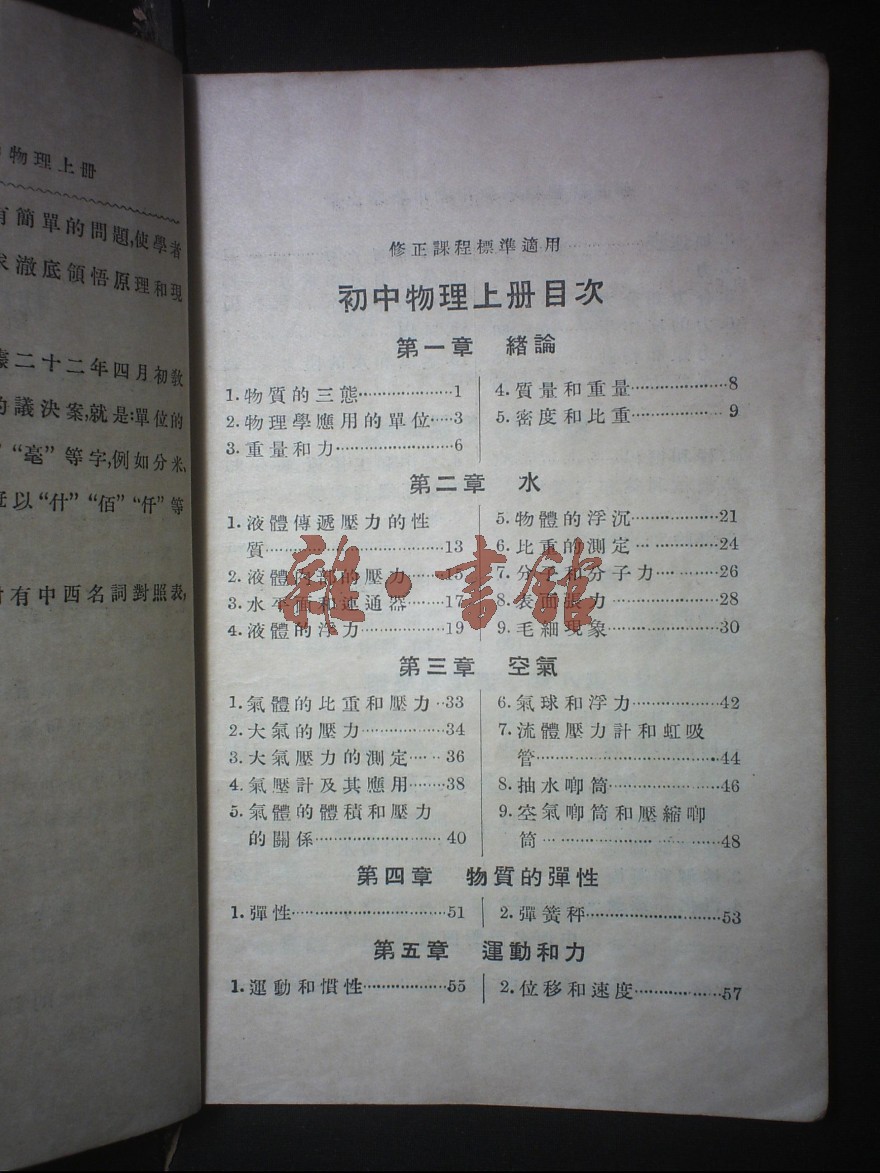 物理上册
有簡單的問題,使學者
求澈底領悟原理和現
二十二年四月初教
的議決案,就是:單位的
“毫”等字,例如分米、
以“什”“佰”“仟”等
有中西名詞對照表,
修正課程標準適用
初中物理上册目次
第一章 緒論
1.物質的三態………………1
2.物理學應用的單位……3
3.重量和力………………6
4.質量和重量………………8
5.密度和比重………………9
第二章 水
1.液體傳遞壓力的性
質………………13
2.液體內部的壓力……15
3.水平面和連通器……17
4.液體的浮力………………19
5.物體的浮沉………………21
6.比重的測定………………24
7.分子和分子力…………26
8.表面張力………………28
9.毛細現象………………30
第三章 空氣
1.氣體的比重和壓力…33
2.大氣的壓力………………34
3.大氣壓力的測定……36
4.氣壓計及其應用……38
5.氣體的體積和壓力
的關係………………40
6.氣球和浮力………………42
7.流體壓力計和虹吸
管………………44
8.抽水唧筒………………46
9.空氣唧筒和壓縮唧
筒………………48
第四章 物質的彈性
1.彈性………………51
2.彈簧秤………………53
第五章 運動和力
1.運動和慣性………………55
2.位移和速度………………57
雜·書館